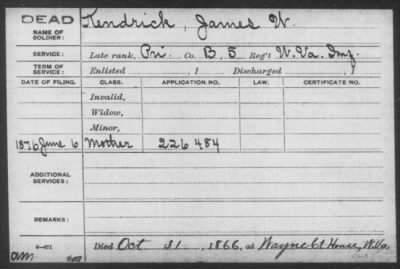 DEAD
NAME OF SOLDIER: Kendrick, James W.
SERVICE: Late rank, Pri Co. B, 5 Reg't W. Va. Inf.
TERM OF SERVICE: Enlisted , 1 Discharged , 1
DATE OF FILING. CLASS. APPLICATION NO. LAW. CERTIFICATE NO.
Invalid,
Widow,
Minor,
1876 June 6 Mother 226 484
ADDITIONAL SERVICES:
REMARKS:
Died Oct 31, 1866, at Wayne Ct House, W.Va.
am